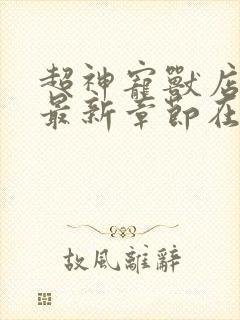 超神寵獸店
最新章節在
故風離辭